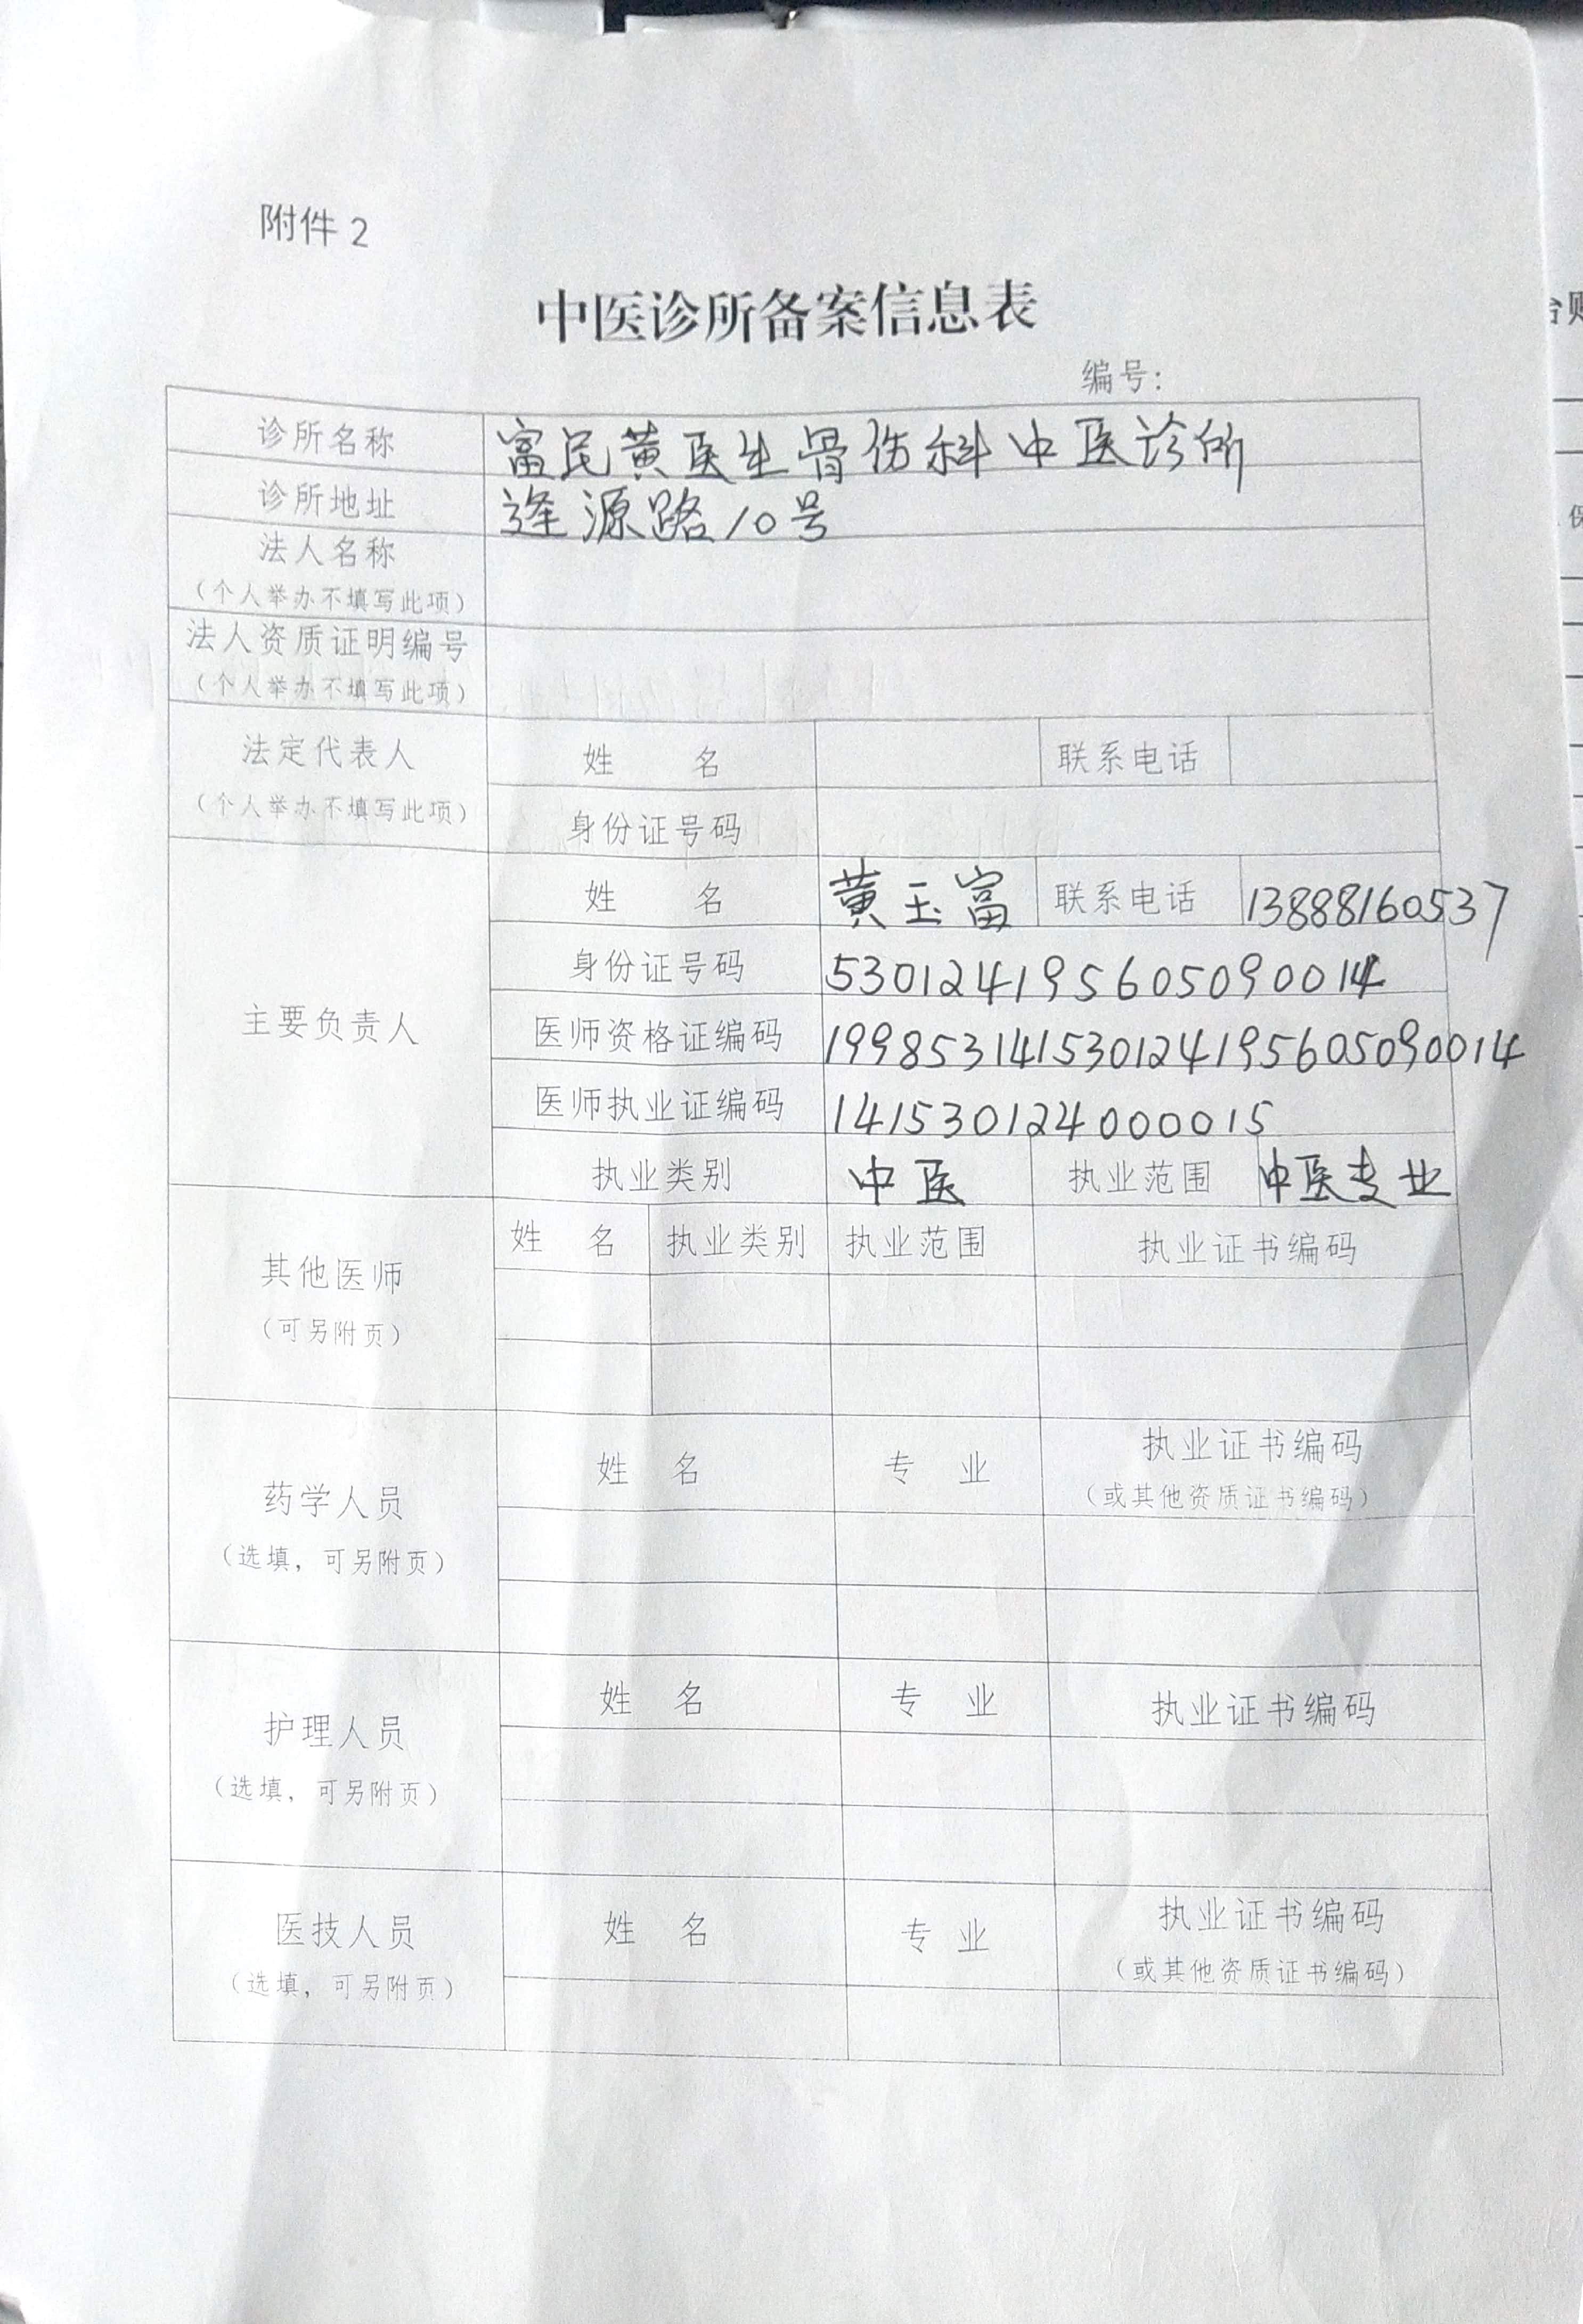 附件 2
中医诊所备案信息表
编号:
诊所名称 富民黄医生骨伤科中医诊所
诊所地址 逢源路10号
法人名称
(个人举办不填写此项)
法人资质证明编号
(个人举办不填写此项)
法定代表人
(个人举办不填写此项)
姓 名 联系电话
身份证号码
主要负责人
姓 名 黄玉富 联系电话 13888160537
身份证号码 530124195605090014
医师资格证编码 199853141530124195605090014
医师执业证编码 141530124000015
执业类别 中医 执业范围 中医专业
其他医师
(可另附页)
姓 名 执业类别 执业范围 执业证书编码
药学人员
(选填,可另附页)
姓 名 专 业 执业证书编码
(或其他资质证书编码)
护理人员
(选填,可另附页)
姓 名 专 业 执业证书编码
医技人员
(选填,可另附页)
姓 名 专 业 执业证书编码
(或其他资质证书编码)
保